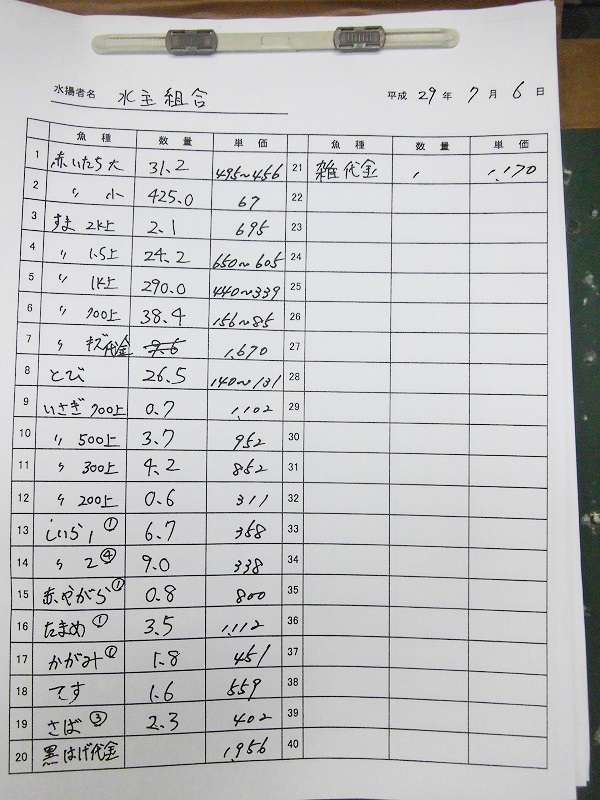 水揚者名 水主組合 平成 29 年 7 月 6 日
魚種 数量 単価
1 赤いたち大 31.2 495~456
2 〃 小 425.0 67
3 すま 2K上 2.1 695
4 〃 1.5上 24.2 650~605
5 〃 1K上 290.0 440~339
6 〃 700上 38.4 156~85
7 〃 キズ代金 9.6 1,670
8 とび 26.5 140~131
9 いさぎ 700上 0.7 1,102
10 〃 500上 3.7 952
11 〃 300上 4.2 852
12 〃 200上 0.6 311
13 しいら 1 ① 6.7 358
14 〃 2 ④ 9.0 338
15 赤やがら ① 0.8 800
16 たまめ ① 3.5 1,112
17 かがみ 1.8 451
18 てす 1.6 559
19 さば ③ 2.3 402
20 黒はげ代金 1,956
魚種 数量 単価
21 雑代金 , 1,170
22
23
24
25
26
27
28
29
30
31
32
33
34
35
36
37
38
39
40